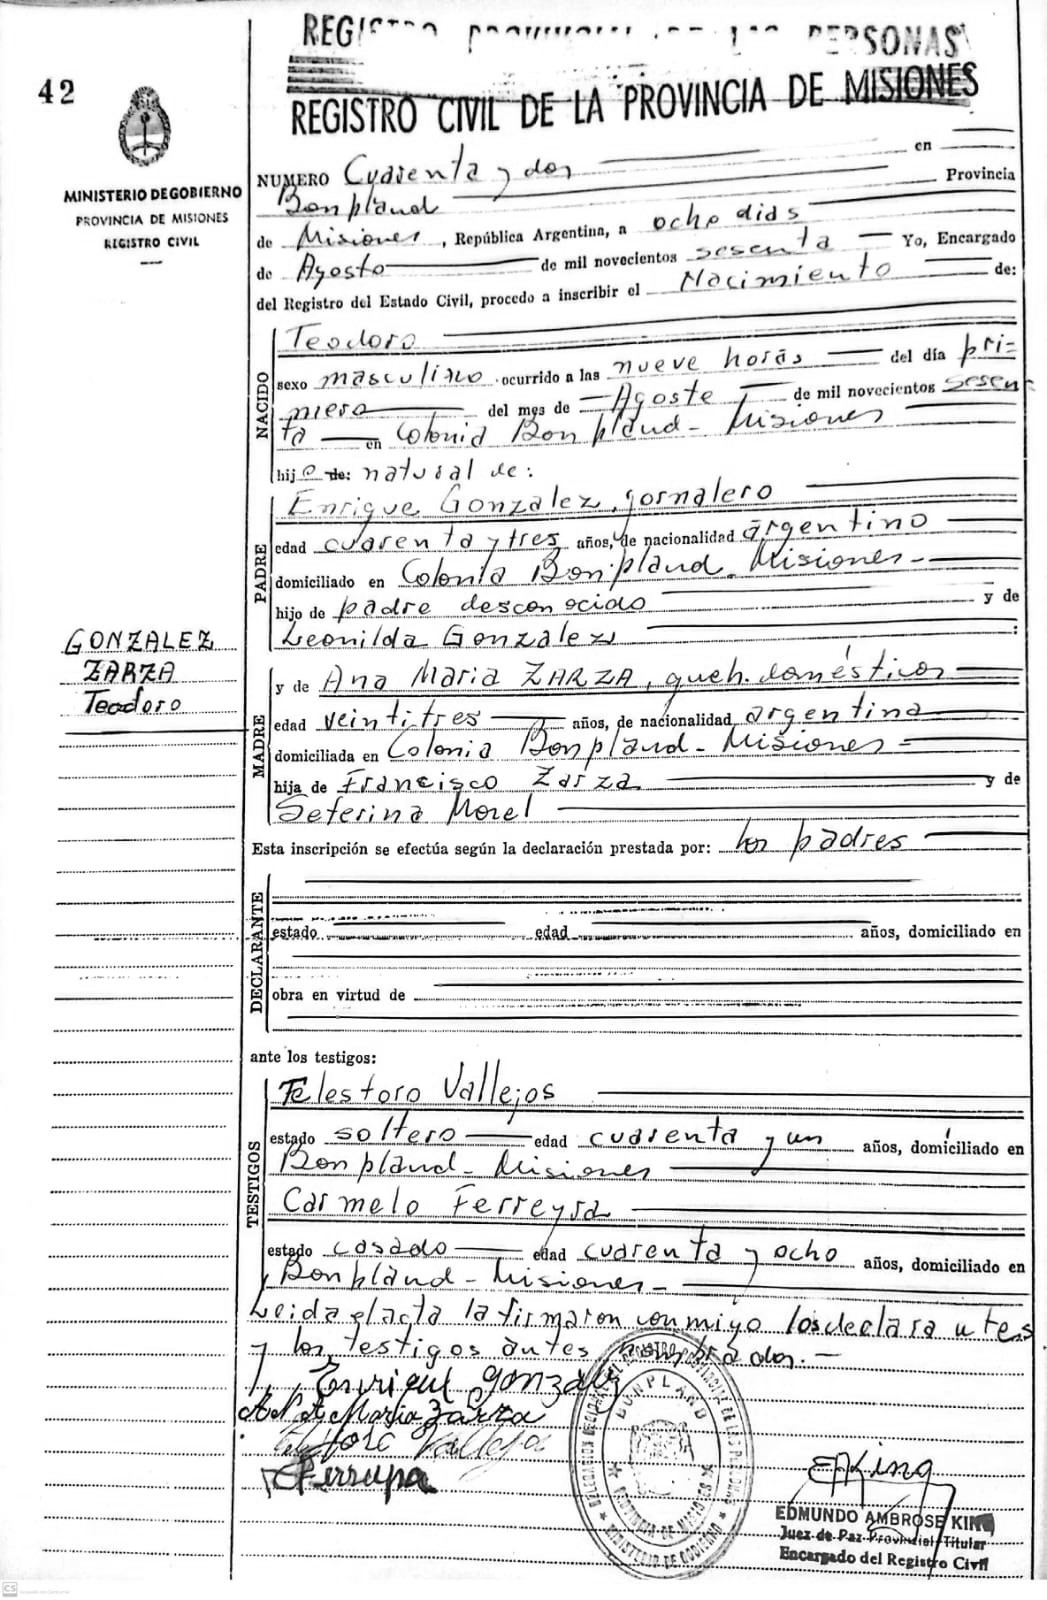 REGISTRO PROVINCIAL DE LAS PERSONAS
REGISTRO CIVIL DE LA PROVINCIA DE MISIONES
42
MINISTERIO DE GOBIERNO
PROVINCIA DE MISIONES
REGISTRO CIVIL
NUMERO Cuarenta y dos en
Bonpland Provincia
de Misiones, República Argentina, a ocho dias
de Agosto de mil novecientos sesenta Yo, Encargado
del Registro del Estado Civil, procedo a inscribir el Nacimiento de:
NACIDO
Teodoro
sexo masculino ocurrido a las nueve horas del día pri=
mero del mes de Agosto de mil novecientos sesen-
ta en Colonia Bonpland - Misiones
hijo de: natural de:
PADRE
Enrique Gonzalez, jornalero
edad cuarenta y tres años, de nacionalidad argentino
domiciliado en Colonia Bonpland - Misiones -
hijo de padre desconocido y de
Leonilda Gonzalez :
GONZALEZ
ZARZA
Teodoro
MADRE
y de Ana Maria ZARZA, queh. domésticos
edad veintitres años, de nacionalidad argentina
domiciliada en Colonia Bonpland - Misiones -
hija de Francisco Zarza y de
Seferina Morel
Esta inscripción se efectúa según la declaración prestada por: los padres
DECLARANTE
estado edad años, domiciliado en
obra en virtud de
ante los testigos:
TESTIGOS
Telestoro Vallejos
estado soltero edad cuarenta y un años, domiciliado en
Bonpland - Misiones
Carmelo Ferreyra
estado casado edad cuarenta y ocho años, domiciliado en
Bonpland - Misiones -
Leida el acta la firmaron conmigo los declarantes
y los testigos antes nombrados. -
Enrique Gonzalez
Ana Maria Zarza
Vallejo
Ferreyra
BONPLAND
PROVINCIA DE MISIONES
MINISTERIO DE GOBIERNO
EAKing
EDMUNDO AMBROSE KING
Juez de Paz Provincial Titular
Encargado del Registro Civil
CS